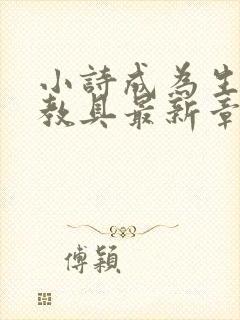 小詩成為生
教具最新章
傅穎